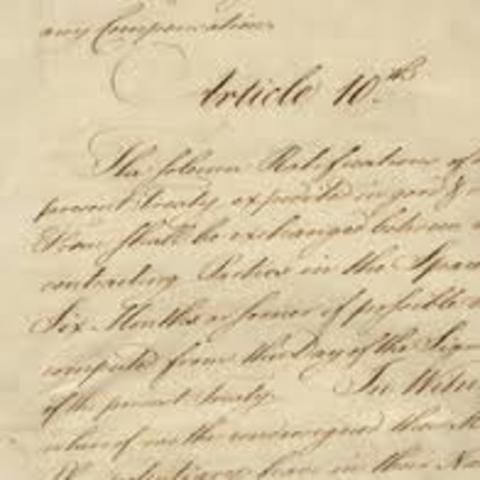 any Compensation
Article 10.th
The solemn Ratifications of
present Treaty expedited in good &
Form shall be exchanged between
contracting Parties in the Space
Six Months or sooner if possible
computed from the Day of the Sig
of the present Treaty. In Witn
whereof we the undersigned their M